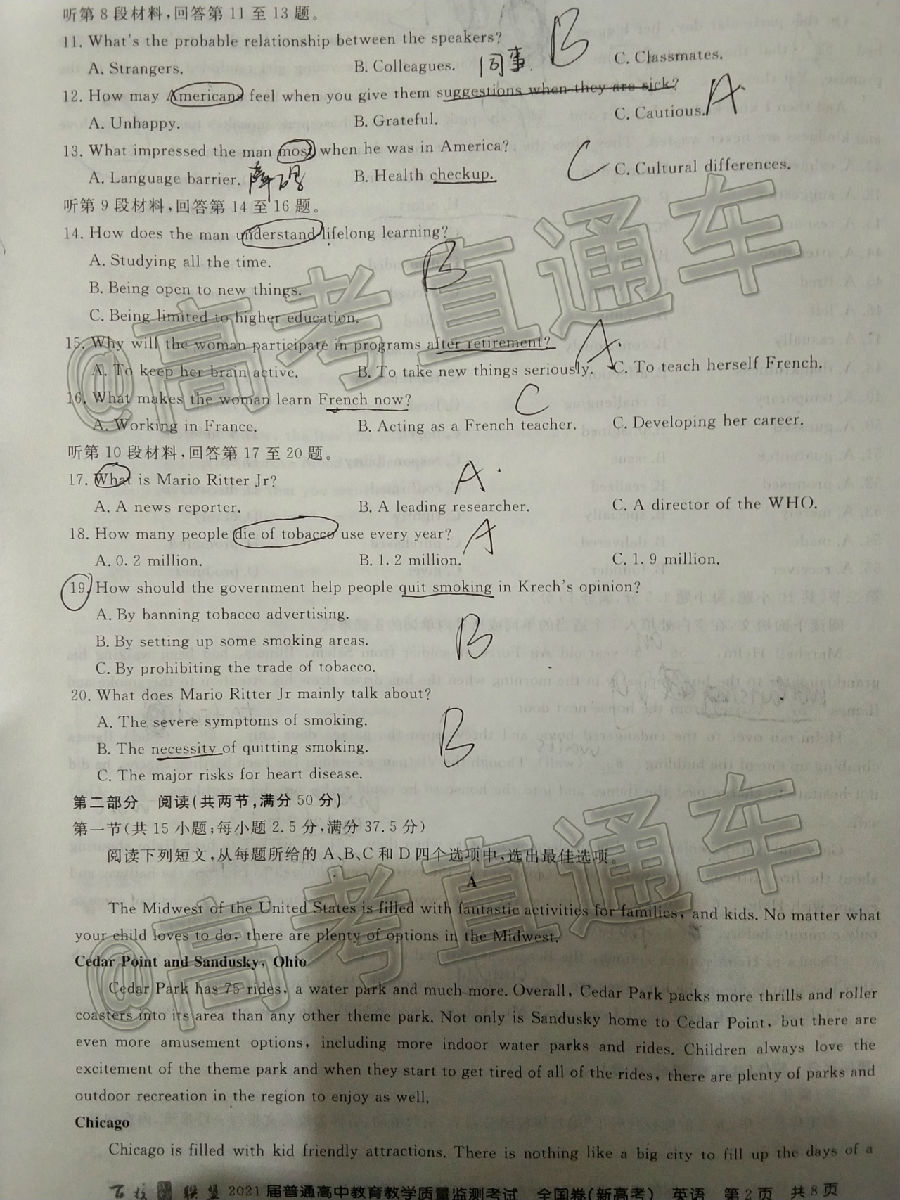 听第8段材料,回答第11至13题。
11. What's the probable relationship between the speakers?
B
A. Strangers.
B. Colleagues.
同事
C. Classmates.
12. How may Americans feel when you give them suggestions when they are sick?
A.
A. Unhappy.
B. Grateful.
C. Cautious.
13. What impressed the man most when he was in America?
C
A. Language barrier.
B. Health checkup.
C. Cultural differences.
听第9段材料,回答第14至16题。
14. How does the man understand lifelong learning?
A. Studying all the time.
B
B. Being open to new things.
C. Being limited to higher education.
15. Why will the woman participate in programs after retirement?
A.
A. To keep her brain active.
B. To take new things seriously.
C. To teach herself French.
16. What makes the woman learn French now?
C
A. Working in France.
B. Acting as a French teacher.
C. Developing her career.
听第10段材料,回答第17至20题。
17. What is Mario Ritter Jr?
A.
A. A news reporter.
B. A leading researcher.
C. A director of the WHO.
18. How many people die of tobacco use every year?
A
A. 0.2 million.
B. 1.2 million.
C. 1.9 million.
19. How should the government help people quit smoking in Krech's opinion?
A. By banning tobacco advertising.
B. By setting up some smoking areas.
B
C. By prohibiting the trade of tobacco.
20. What does Mario Ritter Jr mainly talk about?
A. The severe symptoms of smoking.
B. The necessity of quitting smoking.
B
C. The major risks for heart disease.
第二部分 阅读(共两节,满分50分)
第一节(共15小题;每小题2.5分,满分37.5分)
阅读下列短文,从每题所给的A、B、C和D四个选项中,选出最佳选项。
A
The Midwest of the United States is filled with fantastic activities for families, and kids. No matter what
your child loves to do, there are plenty of options in the Midwest.
Cedar Point and Sandusky, Ohio
Cedar Park has 75 rides, a water park and much more. Overall, Cedar Park packs more thrills and roller
coasters into its area than any other theme park. Not only is Sandusky home to Cedar Point, but there are
even more amusement options, including more indoor water parks and rides. Children always love the
excitement of the theme park and when they start to get tired of all of the rides, there are plenty of parks and
outdoor recreation in the region to enjoy as well.
Chicago
Chicago is filled with kid friendly attractions. There is nothing like a big city to fill up the days of a
2021届普通高中教育教学质量监测考试 全国卷(新高考) 英语 第2页 共8页
@高考直通车
@高考直通车